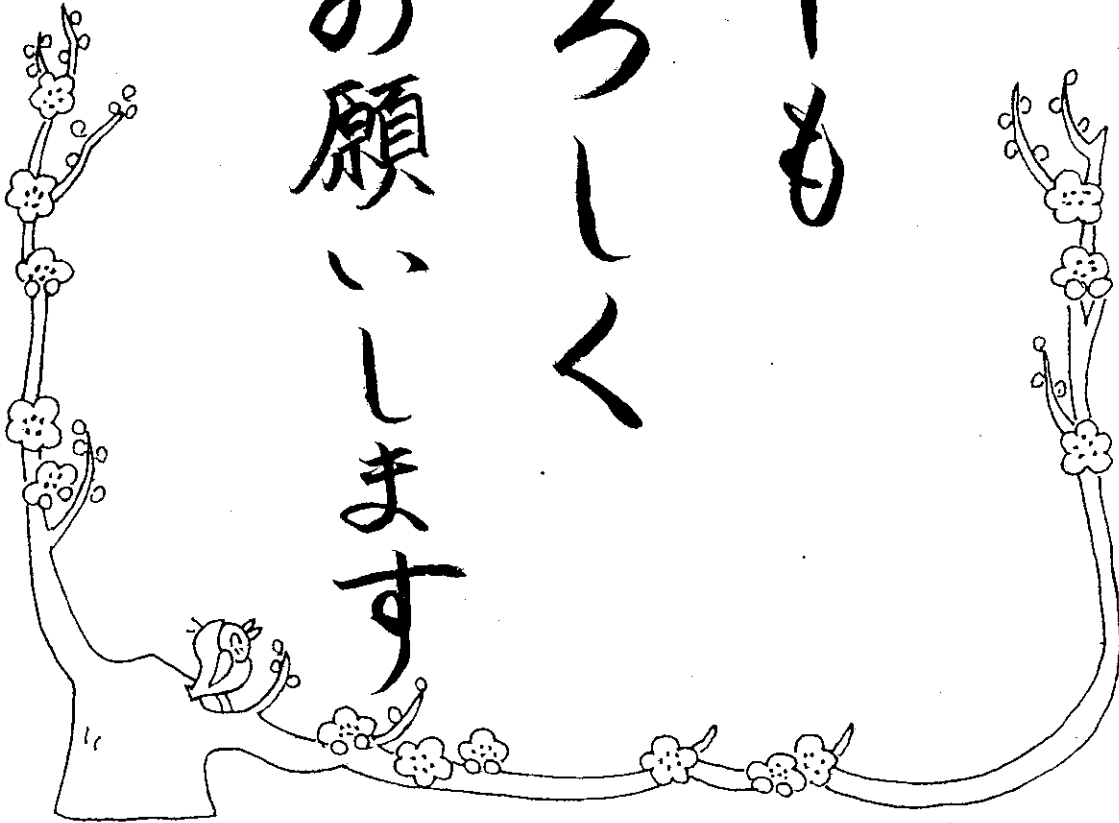 も
ろしく
お願いします